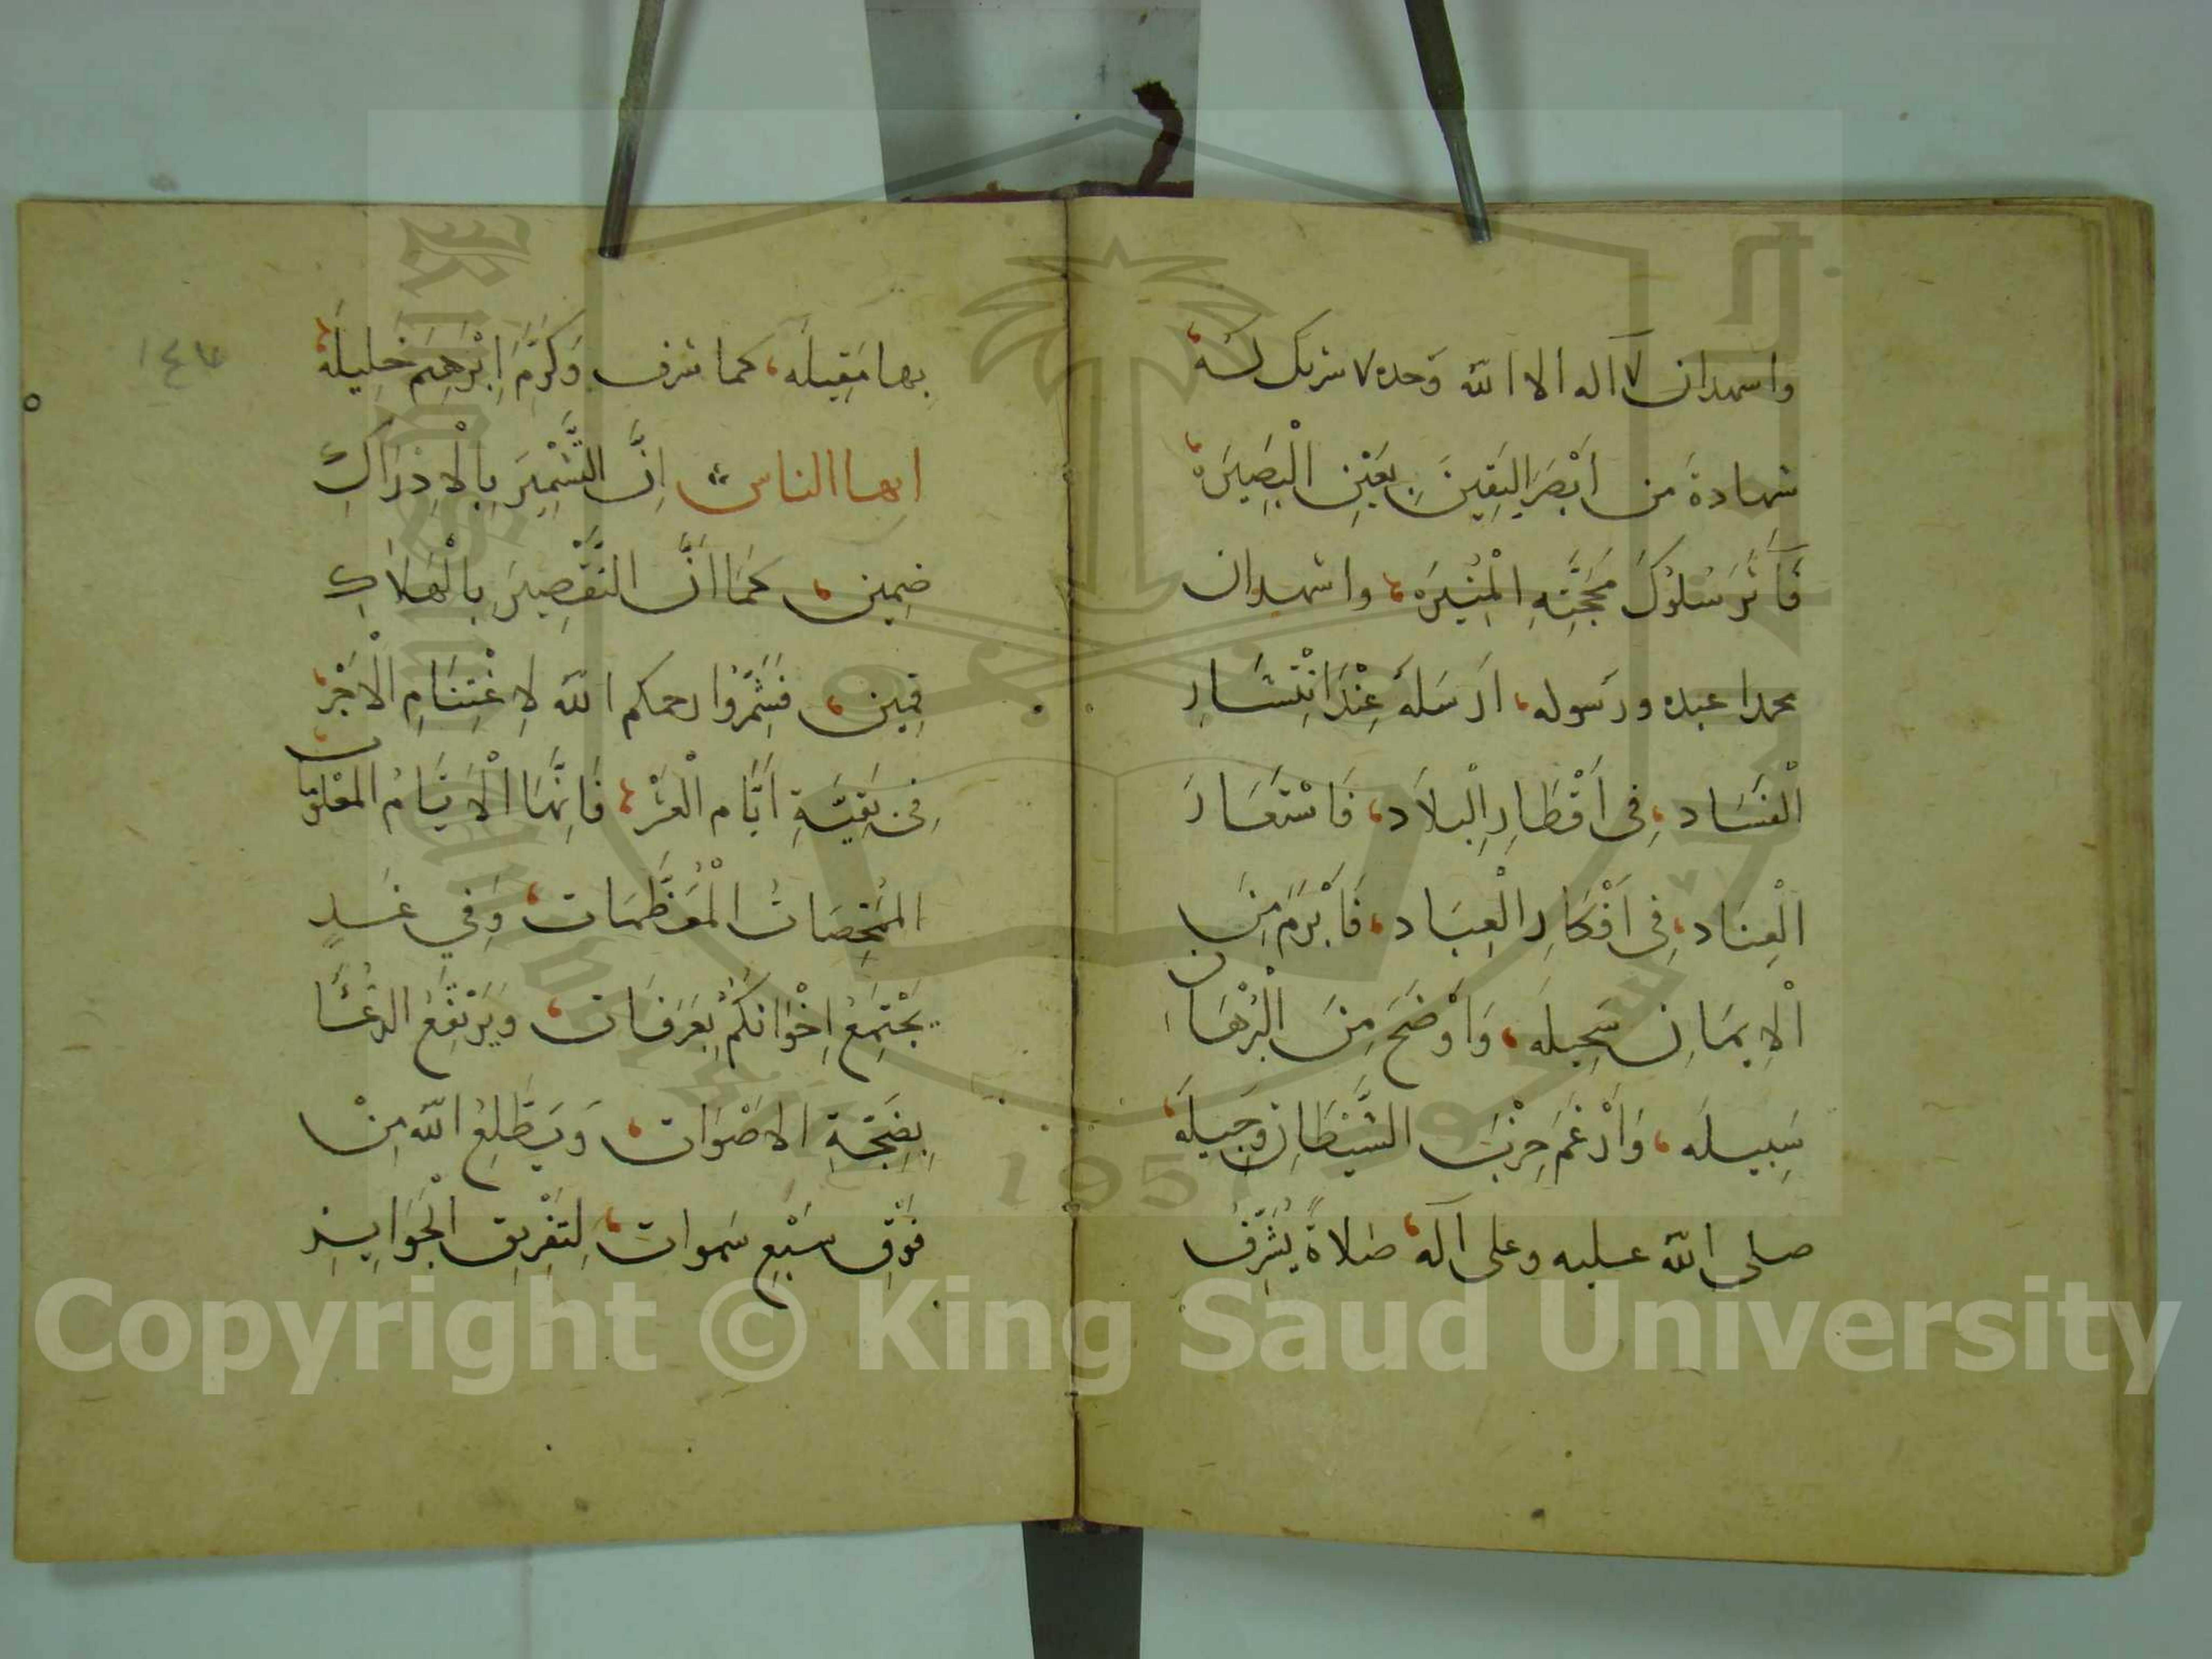 واشهد ان لا اله الا الله وحده لا شريك له،
شهادة من أَبْصَرَ الْيَقِينَ بِعَيْنِ الْبَصِيرَه،
فَآثَرَ سُلُوكَ مَحَجَّتِهِ الْمُنِيرَه، واشهد ان
محمدا عبده ورسوله، اَرْسَلَهُ عِنْدَ انْتِشَارِ
الْفَسَاد، فِى اَقْطَارِ الْبِلَاد، فَاسْتَعَارَ
الْعِنَاد، فِى اَفْكَارِ الْعِبَاد، فَأَبْرَمَ مِنَ
الْاِيمَانِ سَحِيلَه، وَاَوْضَحَ مِنَ الْبُرْهَان
سَبِيلَه، وَاَرْغَمَ حِزْبَ الشَّيْطَانِ وَجِيلَه،
صلى الله عليه وعلى آله، صَلاةً يُشَرِّفُ
بها مَقِيلَه، كما شرف وَكَرَّمَ اِبْرَهِيمَ خَلِيلَهُ،
ايها الناس اِنَّ التَّشْمِيرَ بِالْاِدْرَاكِ
ضَمِين، كَمَا اَنَّ التَّقْصِيرَ بِالْهَلَاكِ
قَمِين، فَشَمِّرُوا رحمكم الله لِاغْتِنَامِ الْاَجْرِ،
فِى بَقِيَّةِ اَيَّامِ الْعَشْرِ، فَاِنَّهَا الْاَيَّامُ الْمَعْلُومَات،
المُمَحِّصَاتُ الْمُعَظَّمَات، وَفِي غَدٍ
يَجْتَمِعُ اِخْوَانُكُمْ بِعَرَفَات، وَيَرْتَفِعُ الدُّعَا
بِضَجَّةِ الاصْوَات، وَيَطَّلِعُ اللّٰه مِنْ
فَوْقِ سَبْعِ سَموات، لِتَفْرِيقِ الْجَوَايِزِ
Copyright © King Saud University
1957